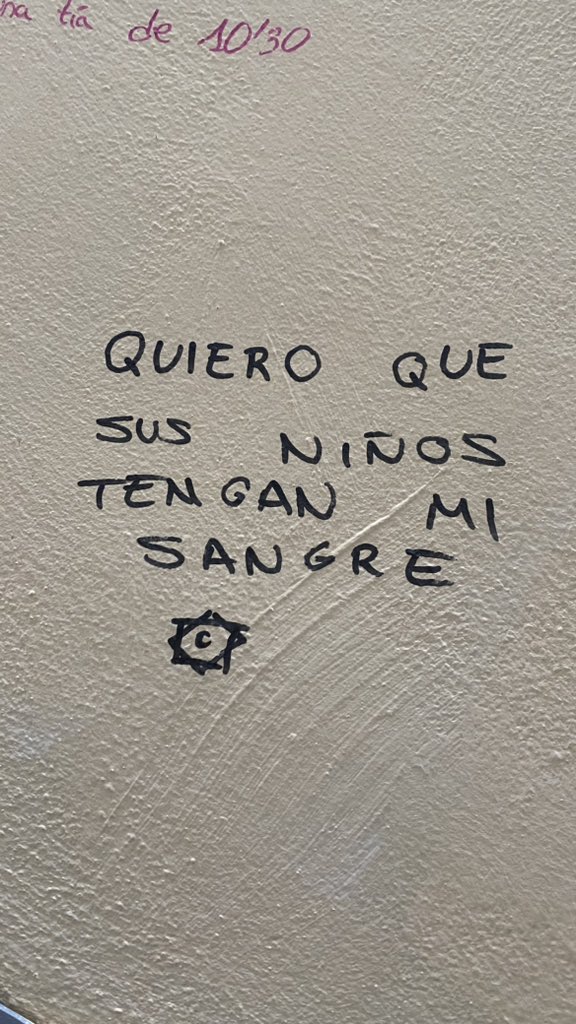 na tía de 10'30
QUIERO QUE
SUS NIÑOS
TENGAN MI
SANGRE
C